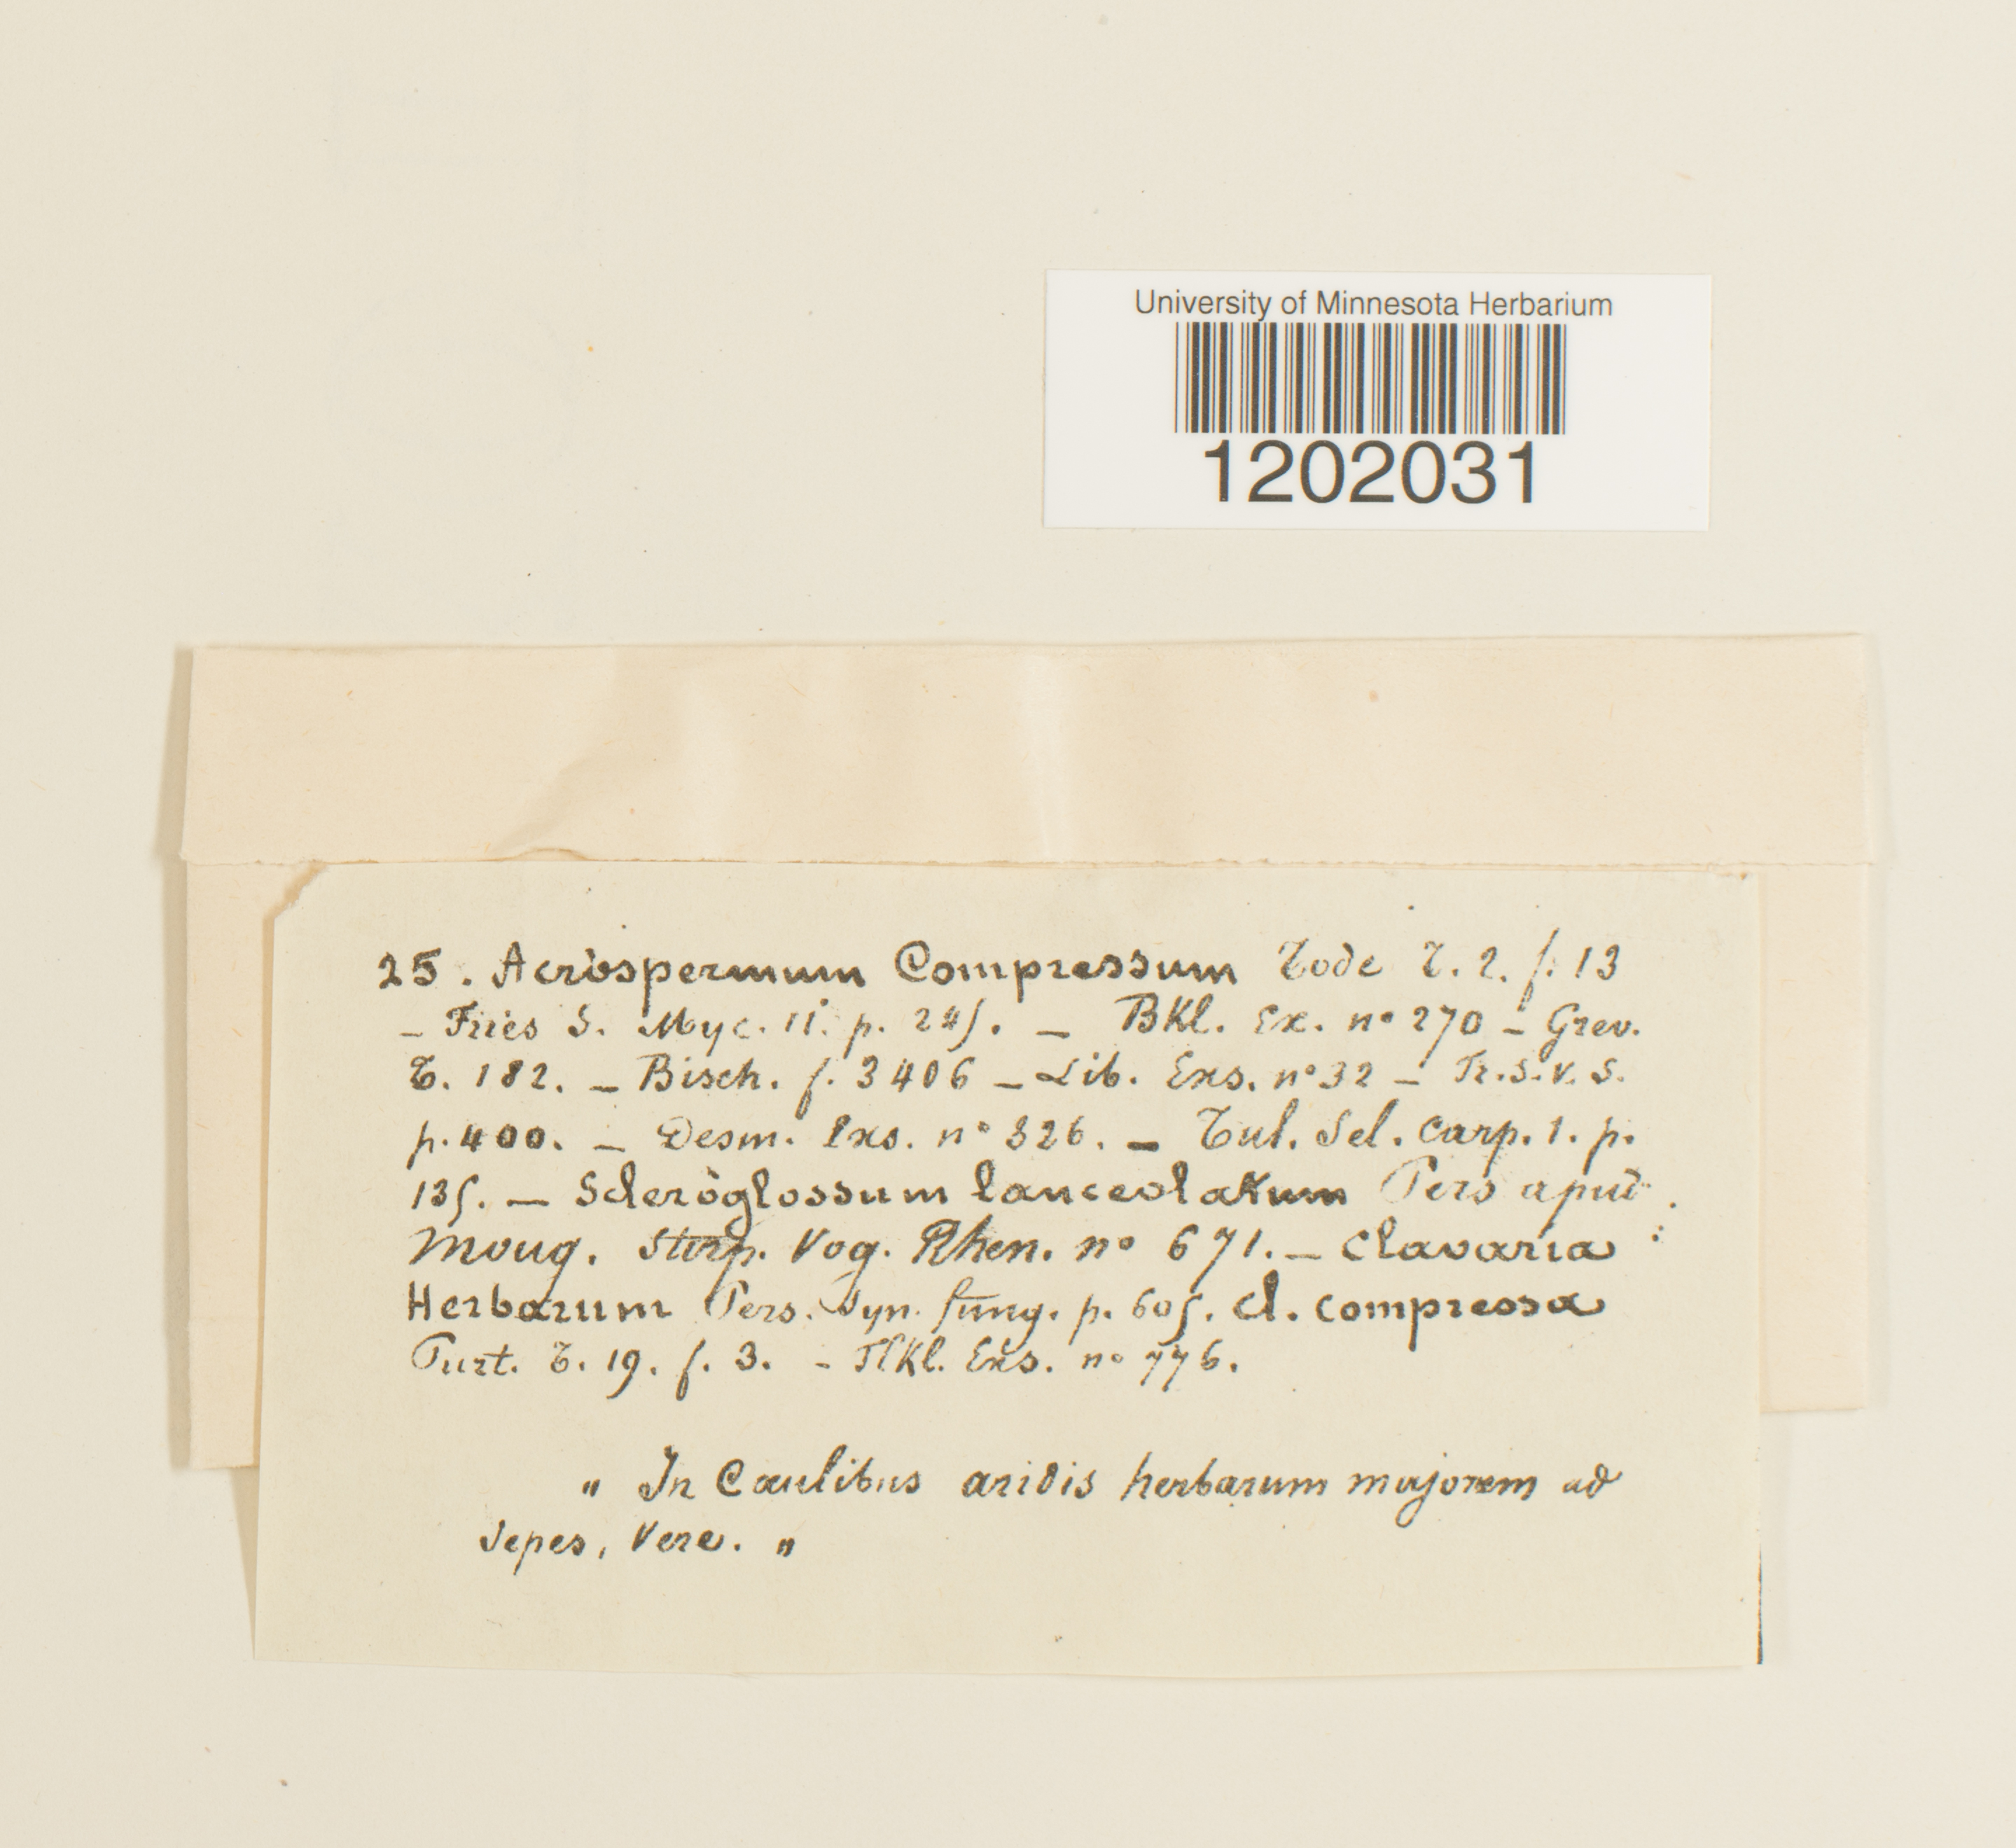 University of Minnesota Herbarium
1202031
25. Acrospermum Compressum Tode T. 2. f. 13
– Fries S. Myc. II. p. 245. – BKl. Ex. n° 270 – Grev.
T. 182. – Bisch. f. 3406 – Lib. Exs. n° 32 – Fr. S. V. S.
p. 400. – Desm. Exs. n° 326. – Tul. Sel. Carp. 1. p.
135. – Scleroglossum lanceolatum Pers apud
Moug. Stirp. Vog. Rhen. n° 671. – Clavaria
Herbarum Pers. Syn. fung. p. 605. Cl. compressa
Purt. T. 19. f. 3. – Exs. n° 776.
" In Caulibus aridis herbarum majorem ad
Sepes, Vere. "